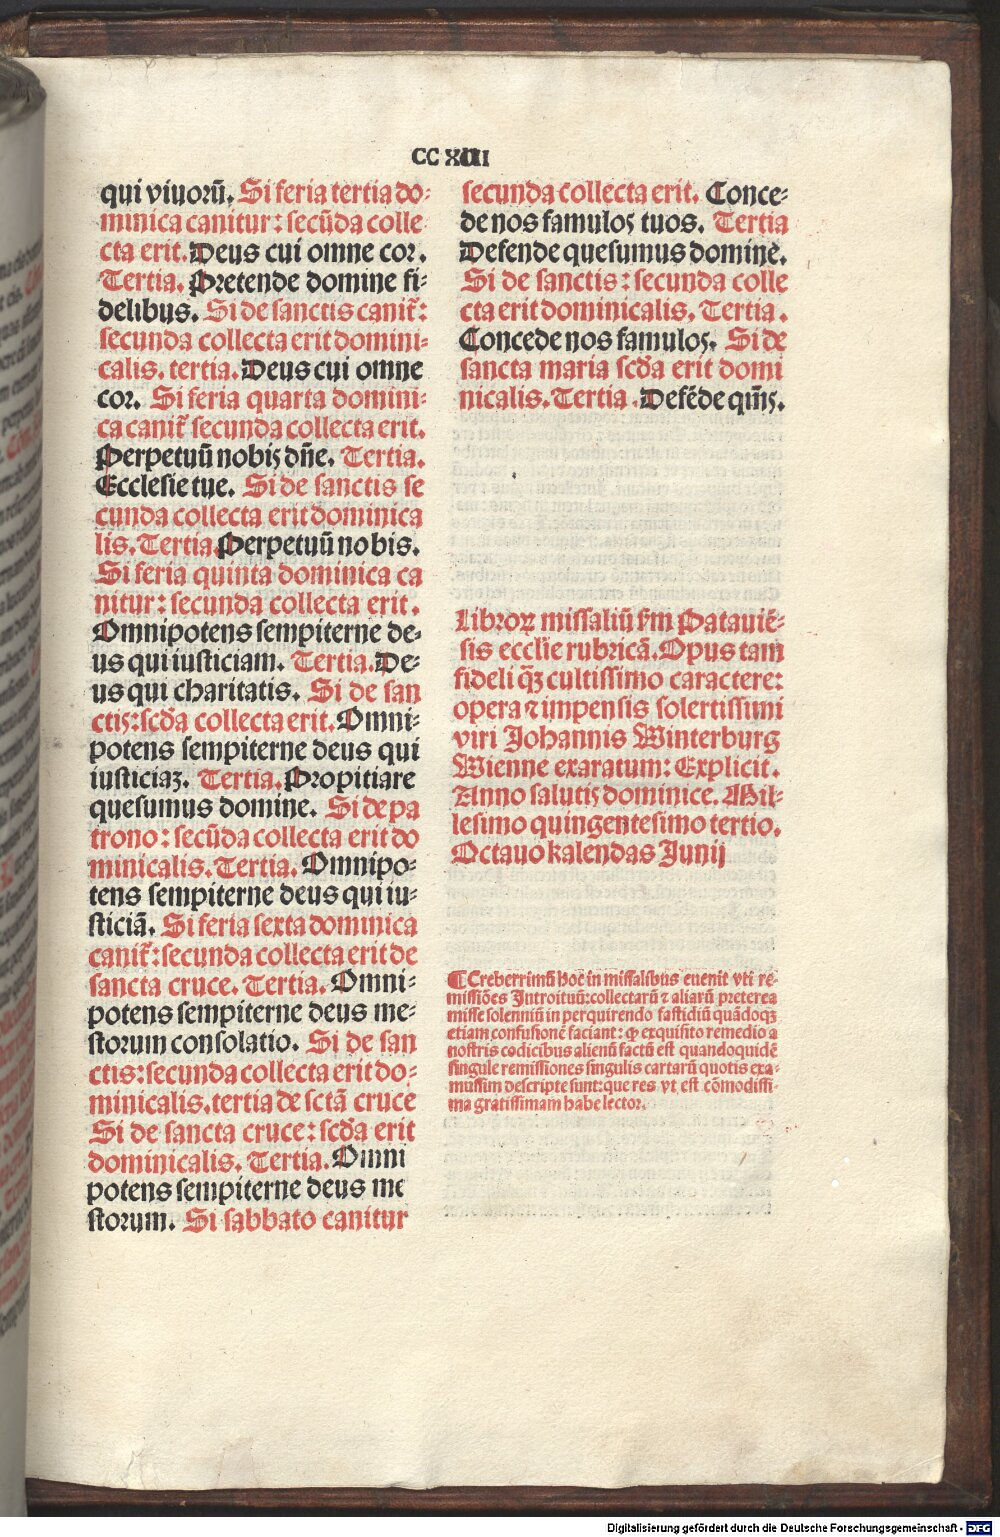 CC XIII
qui viuorū. Si feria tertia do-
minica canitur: secūda colle
cta erit. Deus cui omne cor.
Tertia. Pretende domine fi-
delibus. Si de sanctis canit̄:
secunda collecta erit domini-
calis. tertia. Deus cui omne
cor. Si feria quarta domini-
ca canit̄ secunda collecta erit.
Perpetuū nobis dn̄e. Tertia.
Ecclesie tue. Si de sanctis se
cunda collecta erit dominica
lis. Tertia Perpetuū nobis.
Si feria quinta dominica ca
nitur: secunda collecta erit.
Omnipotens sempiterne de-
us qui iusticiam. Tertia. De-
us qui charitatis. Si de san
ctis: scd̄a collecta erit. Omni-
potens sempiterne deus qui
iusticiaz. Tertia. Propitiare
quesumus domine. Si de pa
trono: secūda collecta erit do
minicalis. Tertia. Omnipo-
tens sempiterne deus qui iu-
sticiā. Si feria sexta dominica
canit̄: secunda collecta erit de
sancta cruce. Tertia. Omni-
potens sempiterne deus me-
storum consolatio. Si de san
ctis: secunda collecta erit do-
minicalis. tertia de sctā cruce
Si de sancta cruce: scd̄a erit
dominicalis. Tertia. Omni
potens sempiterne deus me
storum. Si sabbato canitur
secunda collecta erit. Conce-
de nos famulos tuos. Tertia
Defende quesumus domine.
Si de sanctis: secunda colle
cta erit dominicalis. Tertia.
Concede nos famulos. Si de
sancta maria scd̄a erit domi
nicalis. Tertia. Defēde qm̄s.
Libroꝝ missaliū scd̄m Patauiē-
sis eccl̄ie rubricā. Opus tam
fideli qꝫ cultissimo caractere:
opera ⁊ impensis solertissimi
viri Johannis Winterburg
Wienne exaratum: Explicit.
Anno salutis dominice. Mil-
lesimo quingentesimo tertio.
Octauo kalendas Junij
¶ Creberrimū hoc in missalibus euenit vti re-
missiōes Introituū: collectarū ⁊ aliarū preterea
misse solenniū in perquirendo fastidiū quādoqꝫ
etiam confusionē faciant: ꝙ exquisito remedio a
nostris codicibus alienū factū est quandoquidē
singule remissiones singulis cartarū quotis exa-
mussim descripte sunt: que res vt est cōmodissi-
ma gratissimam habe lector.
Digitalisierung gefördert durch die Deutsche Forschungsgemeinschaft - DFG